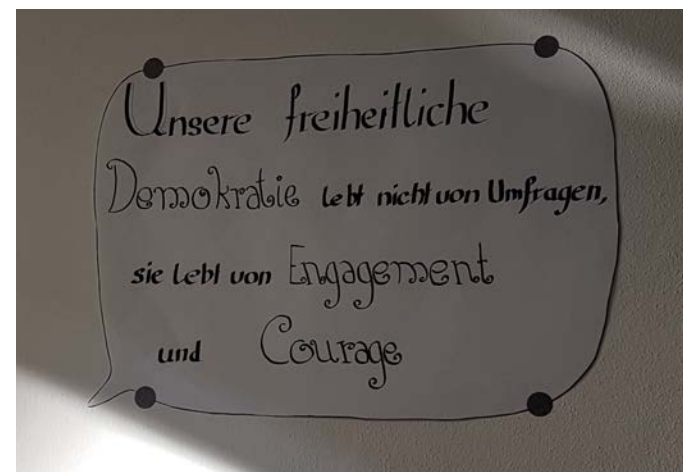 Unsere freiheitliche
Demokratie lebt nicht von Umfragen,
sie lebt von Engagement
und Courage